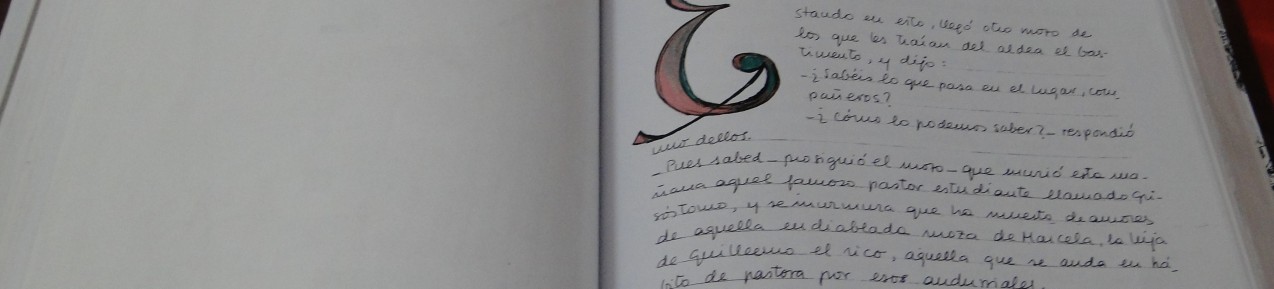 E
stando en esto, llegó otro moro de
los que les traían del aldea el bas-
timento, y dijo:
-¿Sabéis lo que pasa en el lugar, com-
pañeros?
-¿Cómo lo podemos saber? - respondió
uno dellos.
- Pues sabed - prosiguió el moro - que murió esta ma-
ñana aquel famoso pastor estudiante llamado Gri-
sóstomo, y se murmura que ha muerto de amores
de aquella endiablada moza de Marcela, la hija
de Guillermo el rico, aquella que se anda en há-
bito de pastora por esos andurriales.